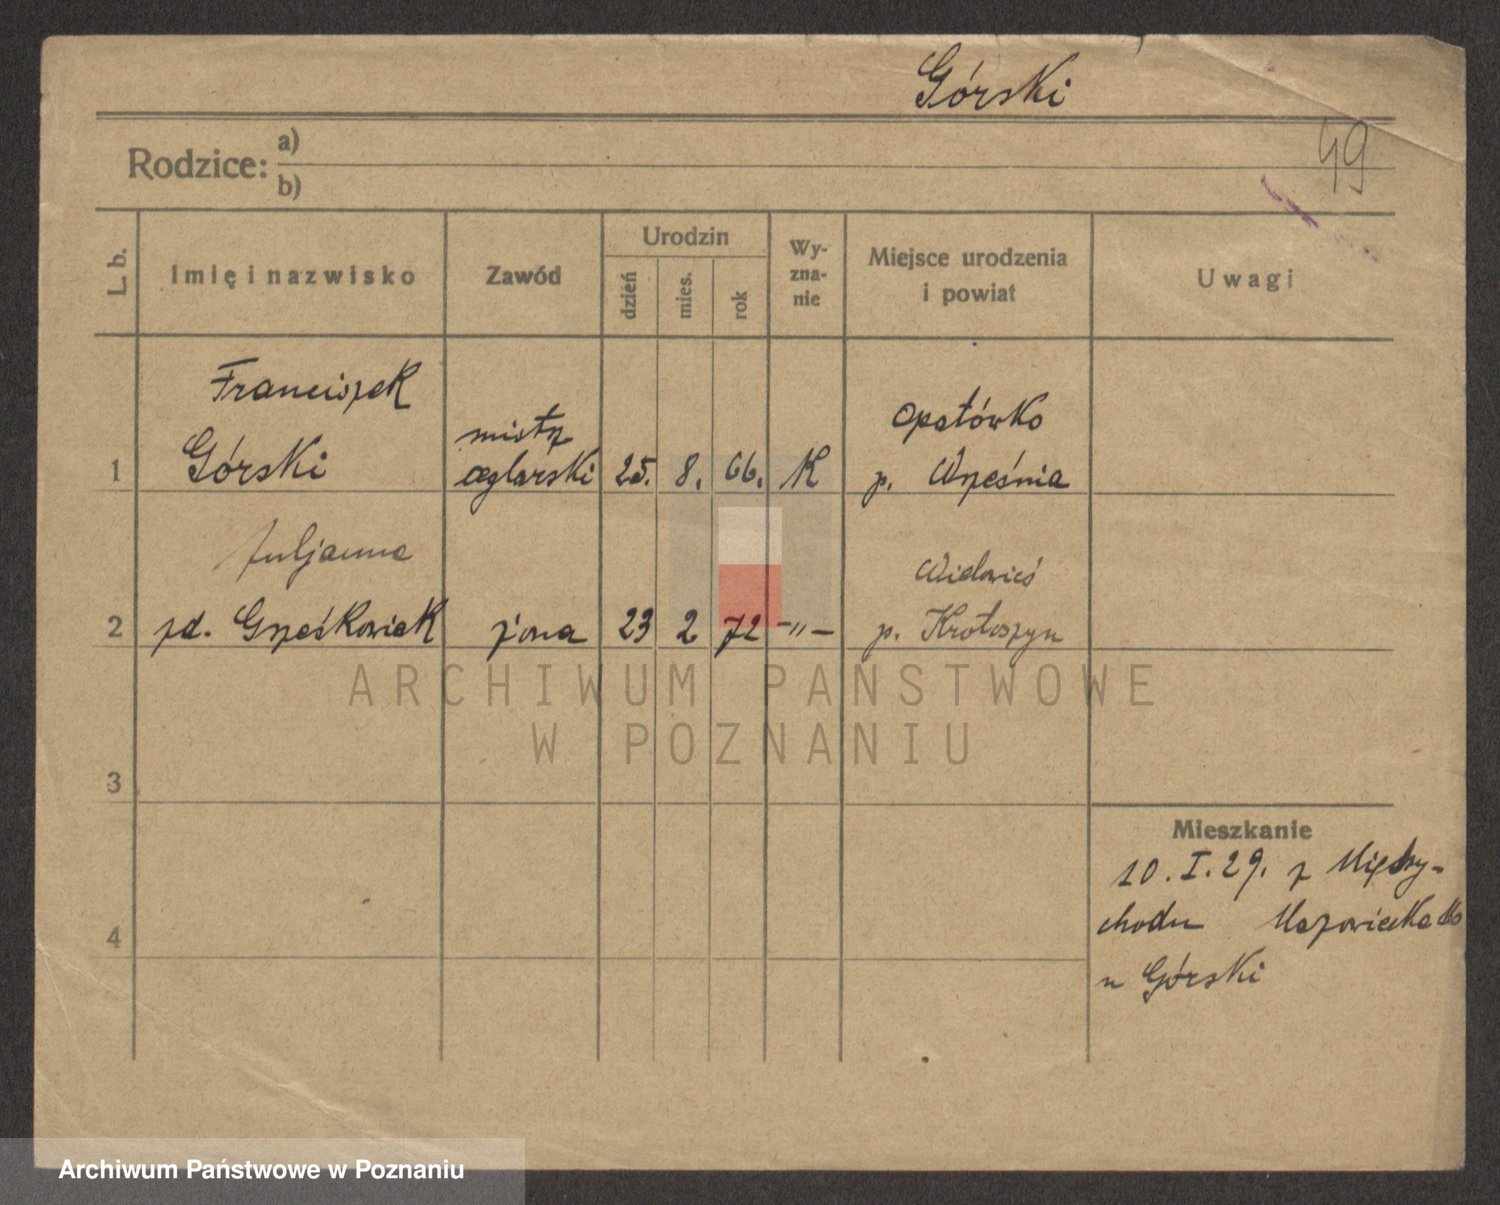 Górski
49
Rodzice: a)
b)
L. b.
Imię i nazwisko
Zawód
Urodzin
dzień
mies.
rok
Wy-
zna-
nie
Miejsce urodzenia
i powiat
Uwagi
Franciszek
Górski
mistrz
ceglarski
1
25.
8.
66.
K
Opatówko
p. Września
Juljanna
2
zd. Grześkowiak
żona
23
2
72
-"-
Wielowieś
p. Krotoszyn
3
4
Mieszkanie
10. I. 29. z Między-
chodu Mazowiecka
u Górski
ARCHIWUM PAŃSTWOWE
W POZNANIU
Archiwum Państwowe w Poznaniu